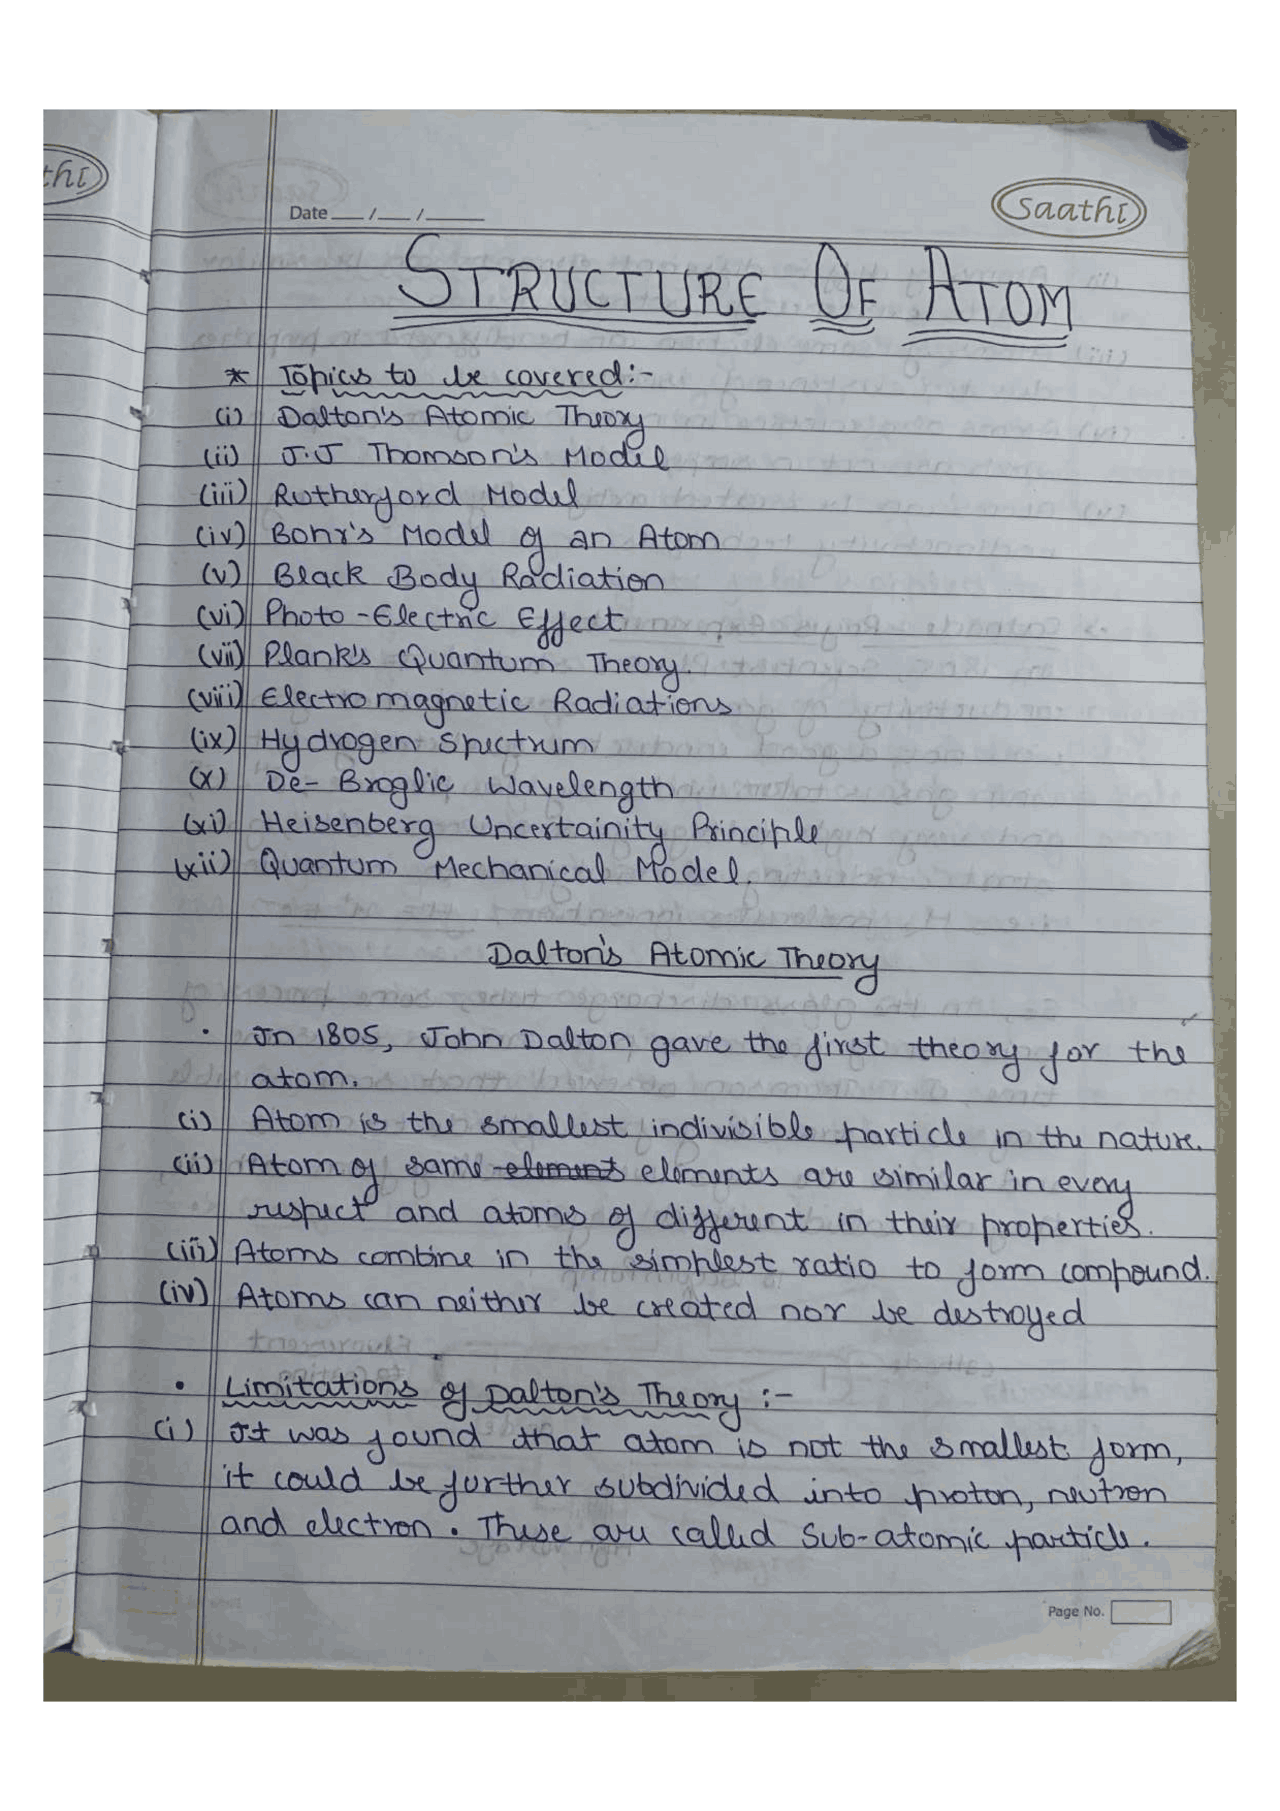 thi
Date ___/___/_____
Saathi
STRUCTURE OF ATOM
* Topics to be covered:-
(i) Dalton's Atomic Theory
(ii) J.J Thomson's Model
(iii) Rutherford Model
(iv) Bohr's Model of an Atom
(v) Black Body Radiation
(vi) Photo-Electric Effect
(vii) Plank's Quantum Theory.
(viii) Electromagnetic Radiations
(ix) Hydrogen Spectrum
(x) De-Broglie Wavelength
(xi) Heisenberg Uncertainity Principle
(xii) Quantum Mechanical Model.
Dalton's Atomic Theory
• In 1805, John Dalton gave the first theory for the
atom.
(i) Atom is the smallest indivisible particle in the nature.
(ii) Atom of same element elements are similar in every
respect and atoms of different in their properties.
(iii) Atoms combine in the simplest ratio to form compound.
(iv) Atoms can neither be created nor be destroyed
• Limitations of Dalton's Theory :-
(i) It was found that atom is not the smallest form,
it could be further subdivided into proton, neutron
and electron. These are called Sub-atomic particle.
Page No.